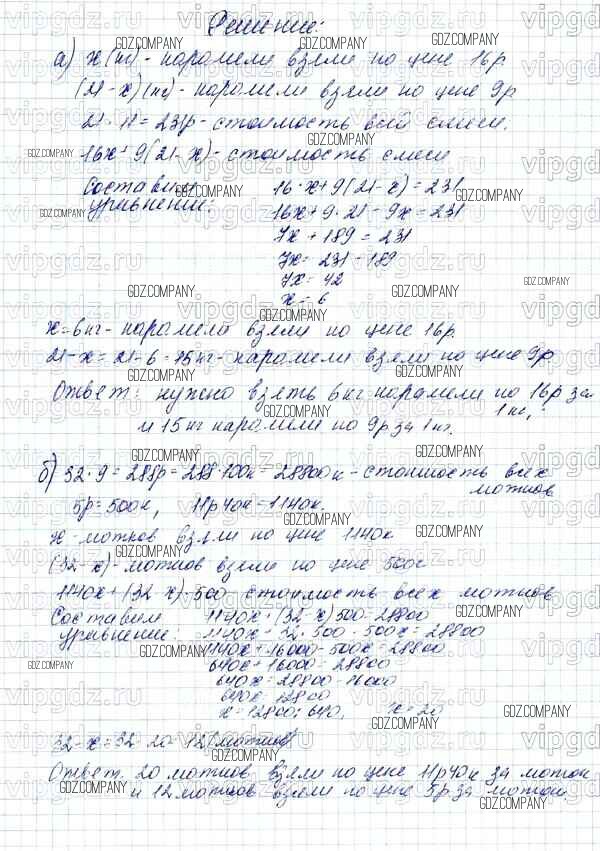 Решение:
а) х (кг) - карамели взяли по цене 16р
(21 - х) (кг) - карамели взяли по цене 9р
21 · 11 = 231р - стоимость всей смеси.
16х + 9(21 - х) - стоимость смеси
Составим уравнение:
16·х + 9(21 - х) = 231
16х + 9·21 - 9х = 231
7х + 189 = 231
7х = 231 - 189
7х = 42
х = 6
х = 6 кг - карамели взяли по цене 16р.
21 - х = 21 - 6 = 15 кг - карамели взяли по цене 9р
Ответ: нужно взять 6 кг карамели по 16р за 1 кг,
и 15 кг карамели по 9р за 1 кг.
б) 32 · 9 = 288р = 288 · 100к = 28800к - стоимость всех
мотков
5р = 500к, 11р 40к = 1140к.
х - мотков взяли по цене 1140к
(32 - х) - мотков взяли по цене 500к
1140х + (32 - х)·500 стоимость всех мотков
Составим уравнение:
1140х + (32 - х) 500 = 28800
1140х + 32 · 500 - 500х = 28800
1140х + 16000 - 500х = 28800
640х + 16000 = 28800
640х = 28800 - 16000
640х = 12800
х = 12800 : 640, х = 20
32 - х = 32 - 20 = 12 (мотков)
Ответ. 20 мотков взяли по цене 11р 40к за моток
и 12 мотков взяли по цене 5р за моток.
vipgdz.ru
GDZ.COMPANY